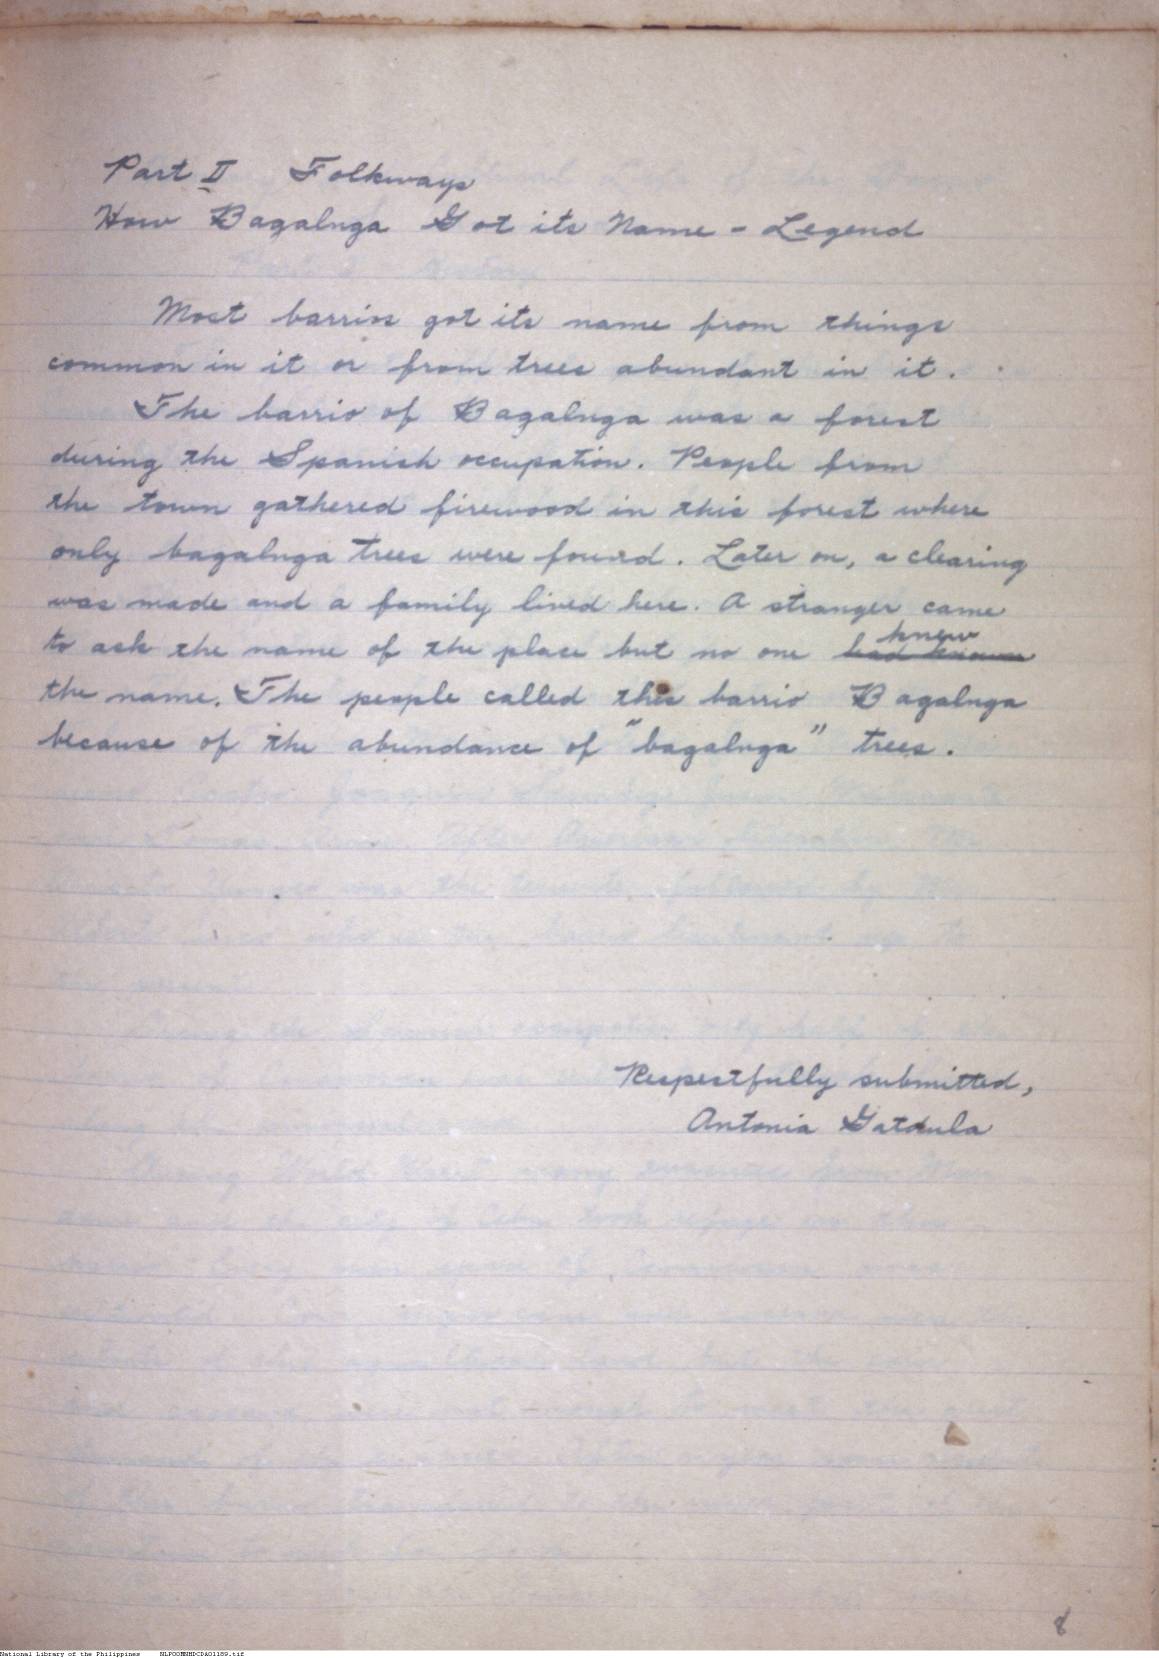 Part II Folkways
How Bagalnga Got its Name - Legend
Most barrios got its name from things
common in it or from trees abundant in it.
The barrio of Bagalnga was a forest
during the Spanish occupation. People from
the town gathered firewood in this forest where
only bagalnga trees were found. Later on, a clearing
was made and a family lived here. A stranger came
to ask the name of the place but no one had known knew
the name. The people called this barrio Bagalnga
because of the abundance of "bagalnga" trees.
Respectfully submitted,
Antonia Gatdula
8
National Library of the Philippines NLPOOMNHDCDA01189.tif